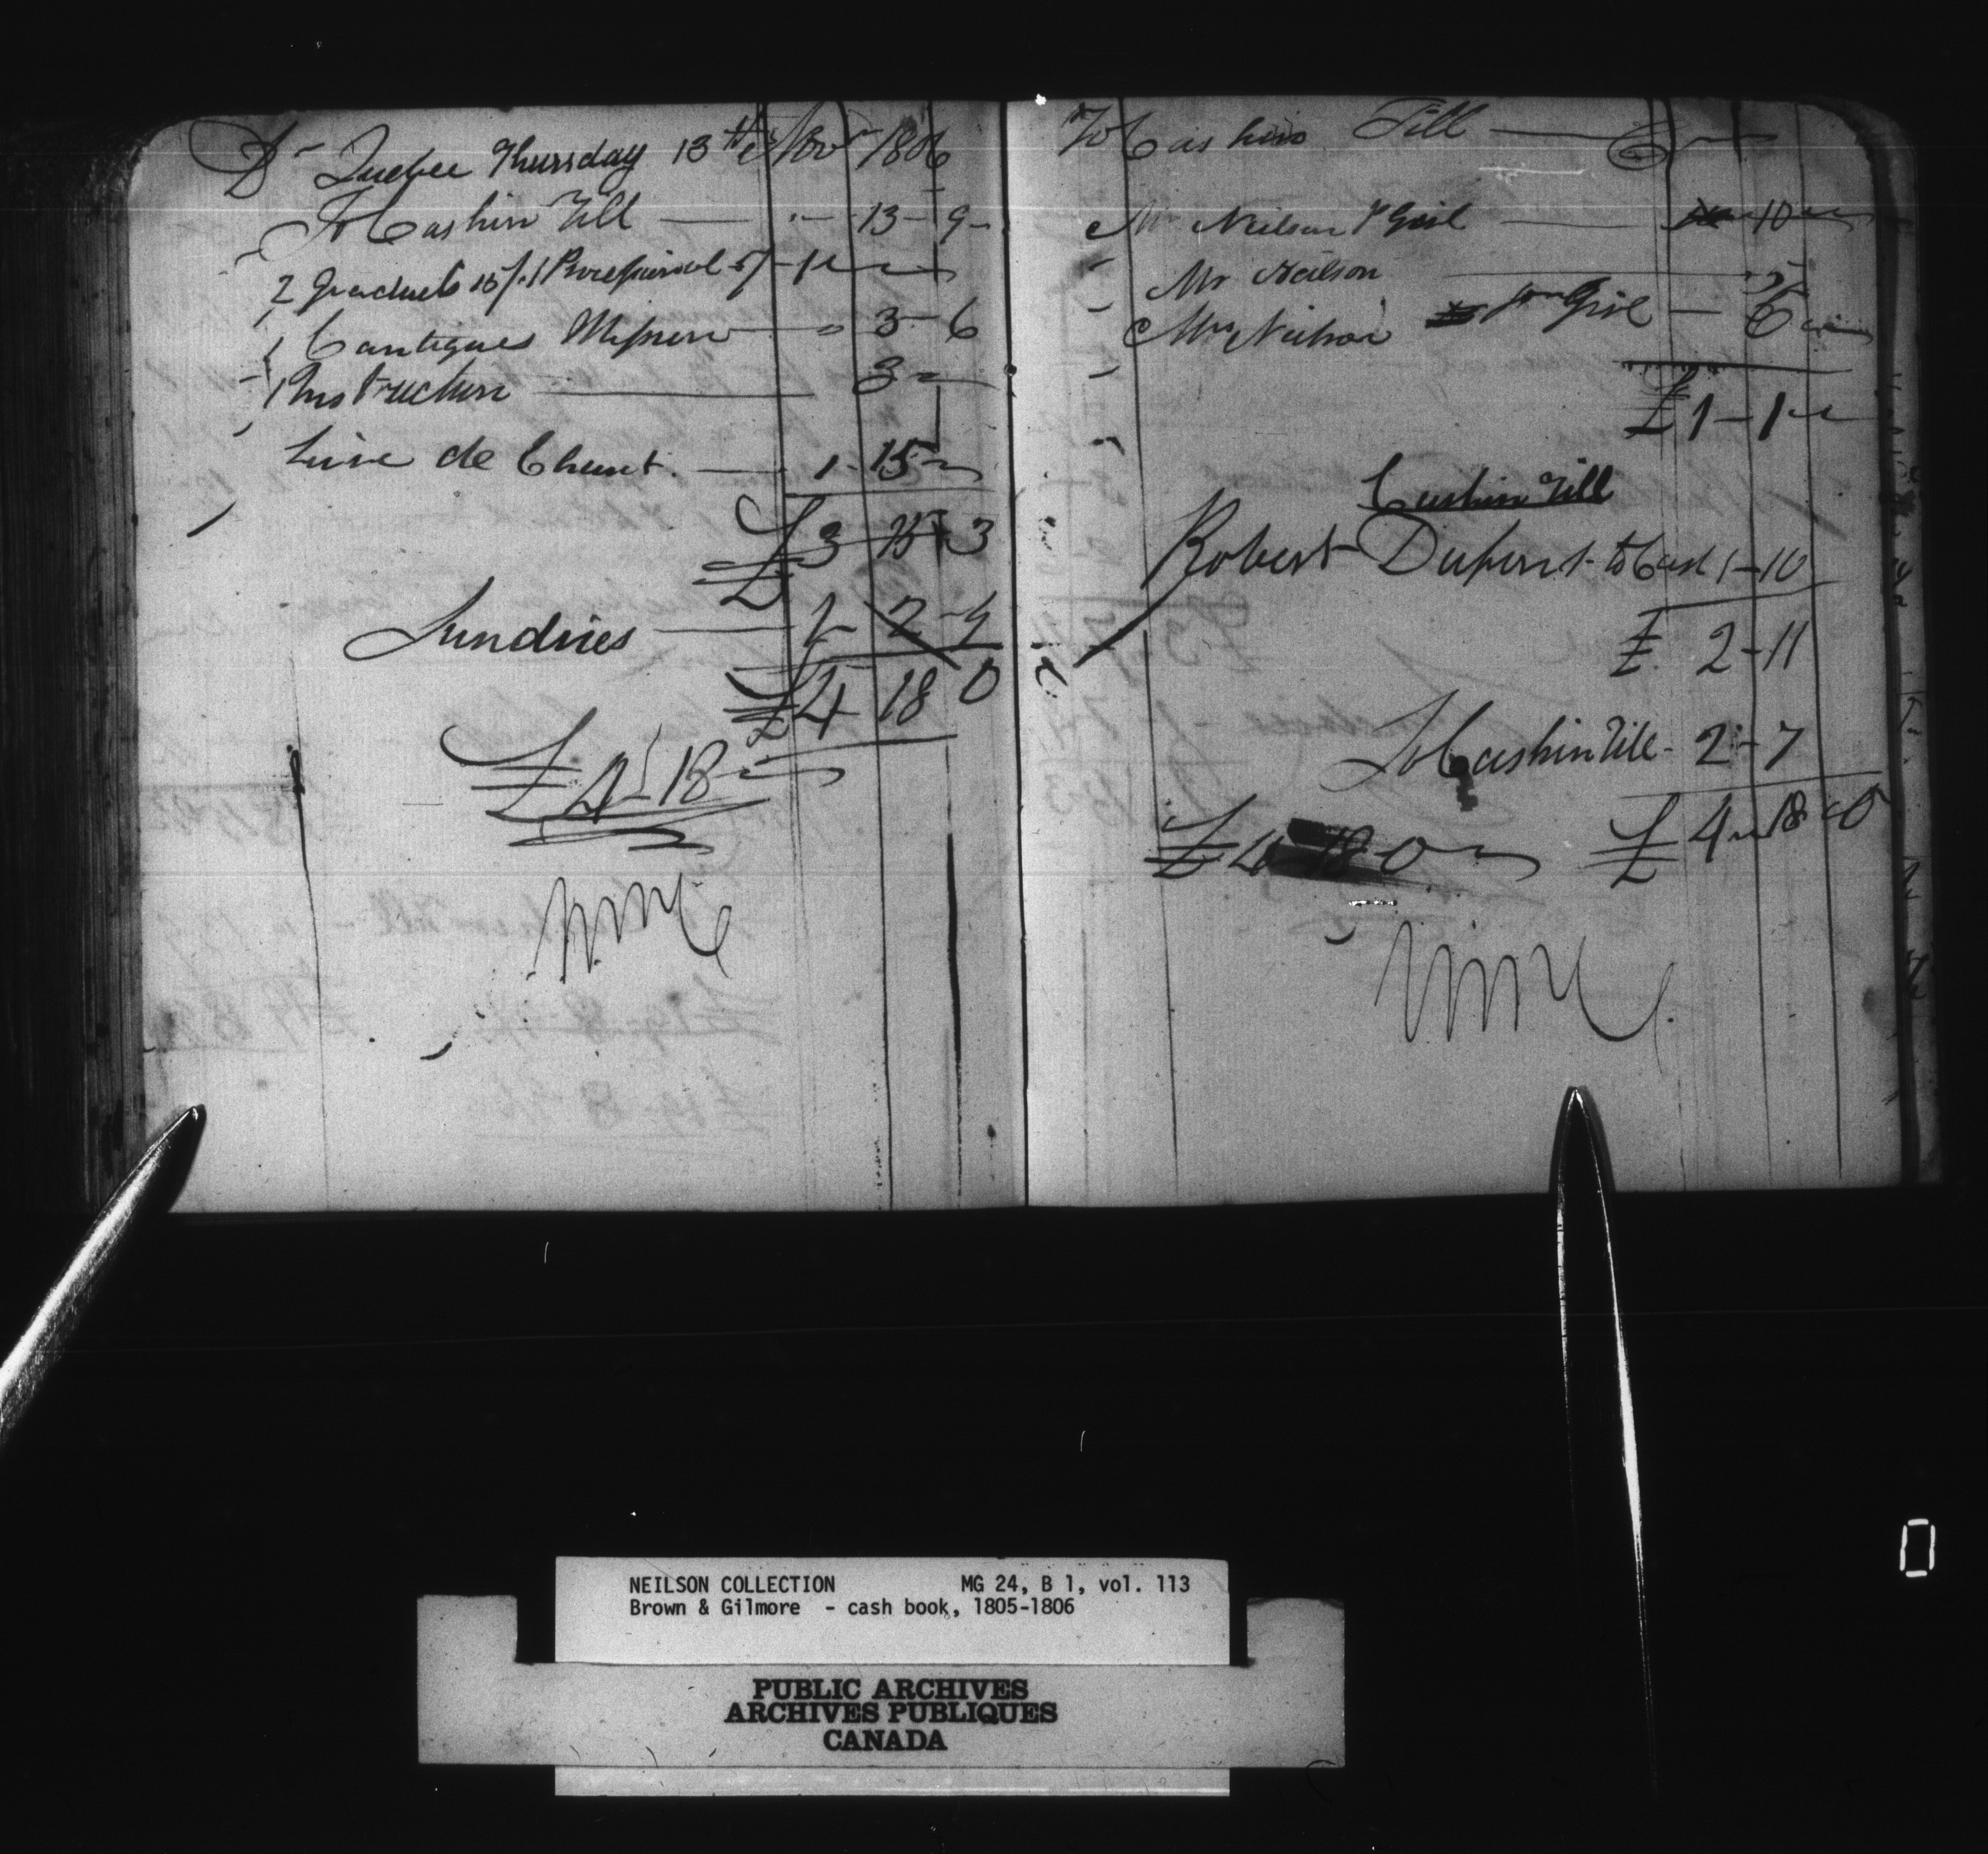 Dr Quebec Thursday 13th Novr 1806
To Cash in Till — " 13 - 9
2 Graduels 15/. 1 Processional 5/ - 1 " "
1 Cantiques Mission — " 3 - 6
1 Instruction — 3 "
Livre de Chant. — 1 - 15 "
£ 3 15 3
Sundries — 1 - 2 - 9
£ 4 18 0
£ 4 - 18 "
To Cash in Till — Cr
Mr Neilson Girl — 10 "
Mr Neilson — 5
Mrs Neilson Girl — 6 "
£ 1 - 1 "
Cash in Till
Robert Dupont to Cash 1 - 10
£ 2 - 11
To Cash in Till - 2 - 7
£ 4 " 18 " 0
£ 4 18 0
NEILSON COLLECTION MG 24, B 1, vol. 113
Brown & Gilmore - cash book, 1805-1806
PUBLIC ARCHIVES
ARCHIVES PUBLIQUES
CANADA